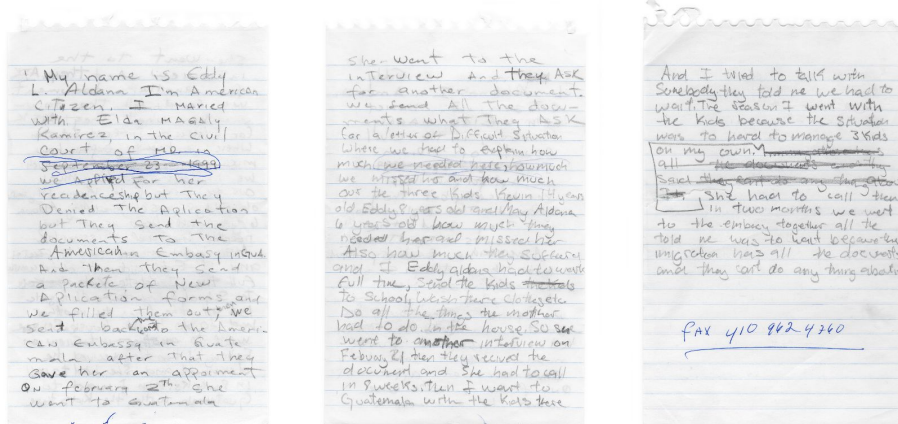 My name is Eddy
L. Aldana I'm American
Citezen, I maried
with. Elda Magaly
Ramirez, in the Civill
Court of MD in
September 23 - 1999
we Applied for her
residenceship but They
Denied The Aplication
but They Send the
documents To The
American Embasy in Guat.
And Then They Send
a packete of New
Aplication forms, and
we filled Them out, we
sent back to the Ameri-
can Embassy in Guate
mala, after That they
Gave her an appoiment
On february 2th She
went to Guatemala
She went to the
interview And They Ask
for another document.
we Send All The docu-
ments what They Ask
for (a letter of Difficult Situation
Where we had to explain how
much we needed her, how much
we missed her and how much
our the three Kids Kevin 14 years
old Eddy 8 years old and May Aldana
6 years old how much they
needed her and missed her
Also how much they suffered
and I Eddy aldana had to work
full time, Send the Kids
to School, Wash there Clothes etc
Do all the things the mother
had to do in the house. So she
went to another interview on
Febuary 21 then they recived the
document and She had to call
in 8 weeks. Then I want to
Guatemala with the Kids there
And I tried to talk with
Somebody they told me we had to
wait. The reason I went with
the Kids because the Situation
was to hard to manage 3 Kids
on my own.
all the documents
Said they can't do any thing about
She had to call them
in two months we went
to the embacy together all the
told me was to wait because the
imigration has all the documents
and they can't do any thing about
FAX 410 962 4760